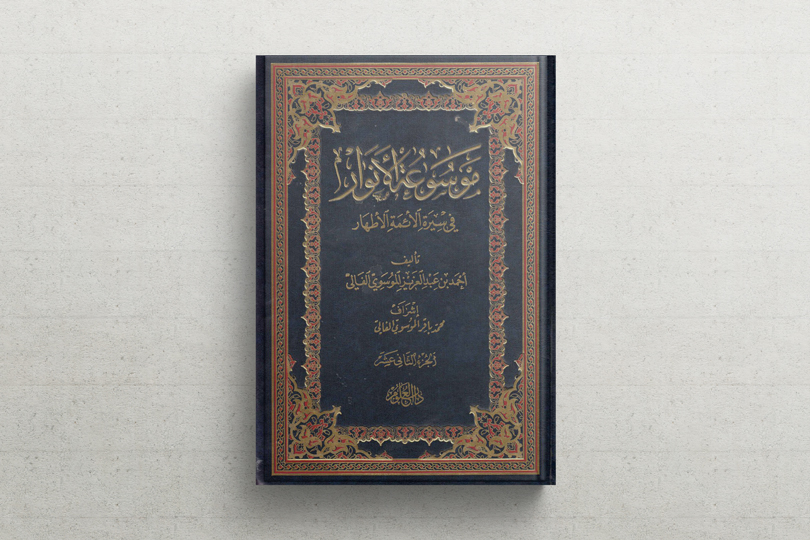 مَوْسُوعَةُ الْأَنْوَارِ
فِي سِيرَةِ الْأَئِمَّةِ الْأَطْهَارِ
تأليف
أَحْمَد بْن عَبْدِ الْعَزِيزِ الْمُوسَوِيّ الْفَالِيّ
إِشْرَاف
مُحَمَّد بَاقِر الْمُوسَوِيّ الْفَالِيّ
الْجُزْءُ الثَّانِي عَشَر
دَارُ الْعُلُومِ